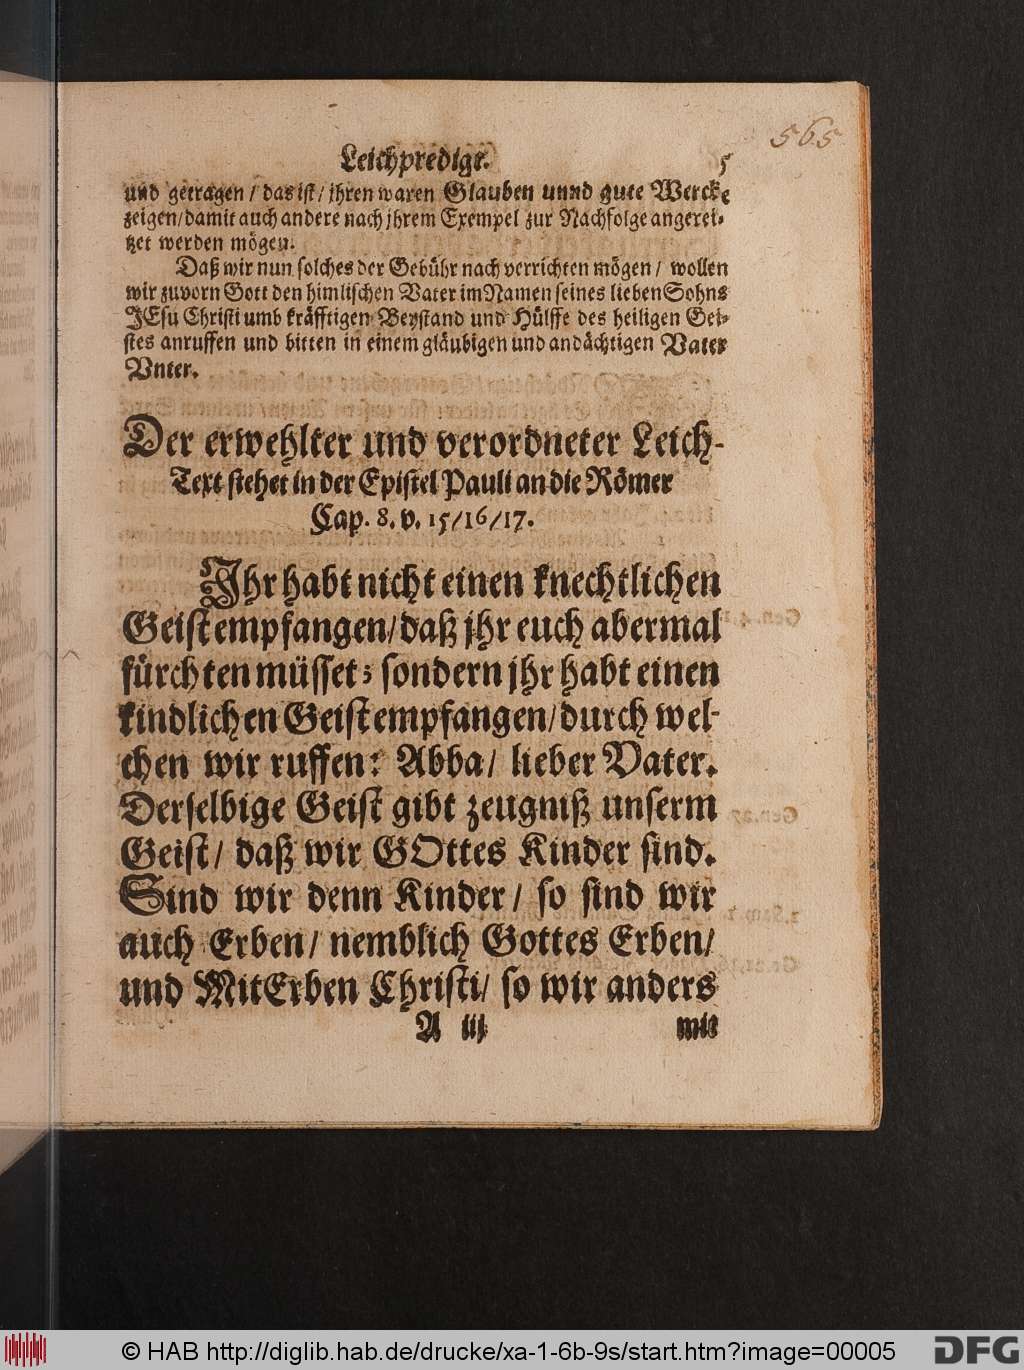 565
Leichpredigt. 5
und getragen / das ist / jhren waren Glauben unnd gute Wercke
zeigen / damit auch andere nach jhrem Exempel zur Nachfolge angerei-
tzet werden mögen.
Daß wir nun solches der Gebühr nach verrichten mögen / wollen
wir zuvorn Gott den himlischen Vater im Namen seines lieben Sohns
JEsu Christi umb kräfftigen Beystand und Hülffe des heiligen Gei-
stes anruffen und bitten in einem gläubigen und andächtigen Vater
Unter.
Der erwehlter und verordneter Leich-
Text stehet in der Epistel Pauli an die Römer
Cap. 8. v. 15/16/17.
Ihr habt nicht einen knechtlichen
Geist empfangen / daß jhr euch abermal
fürchten müsset; sondern jhr habt einen
kindlichen Geist empfangen / durch wel-
chen wir ruffen: Abba / lieber Vater.
Derselbige Geist gibt zeugniß unserm
Geist / daß wir GOttes Kinder sind.
Sind wir denn Kinder / so sind wir
auch Erben / nemblich Gottes Erben /
und MitErben Christi / so wir anders
A iij mit
© HAB http://diglib.hab.de/drucke/xa-1-6b-9s/start.htm?image=00005 DFG